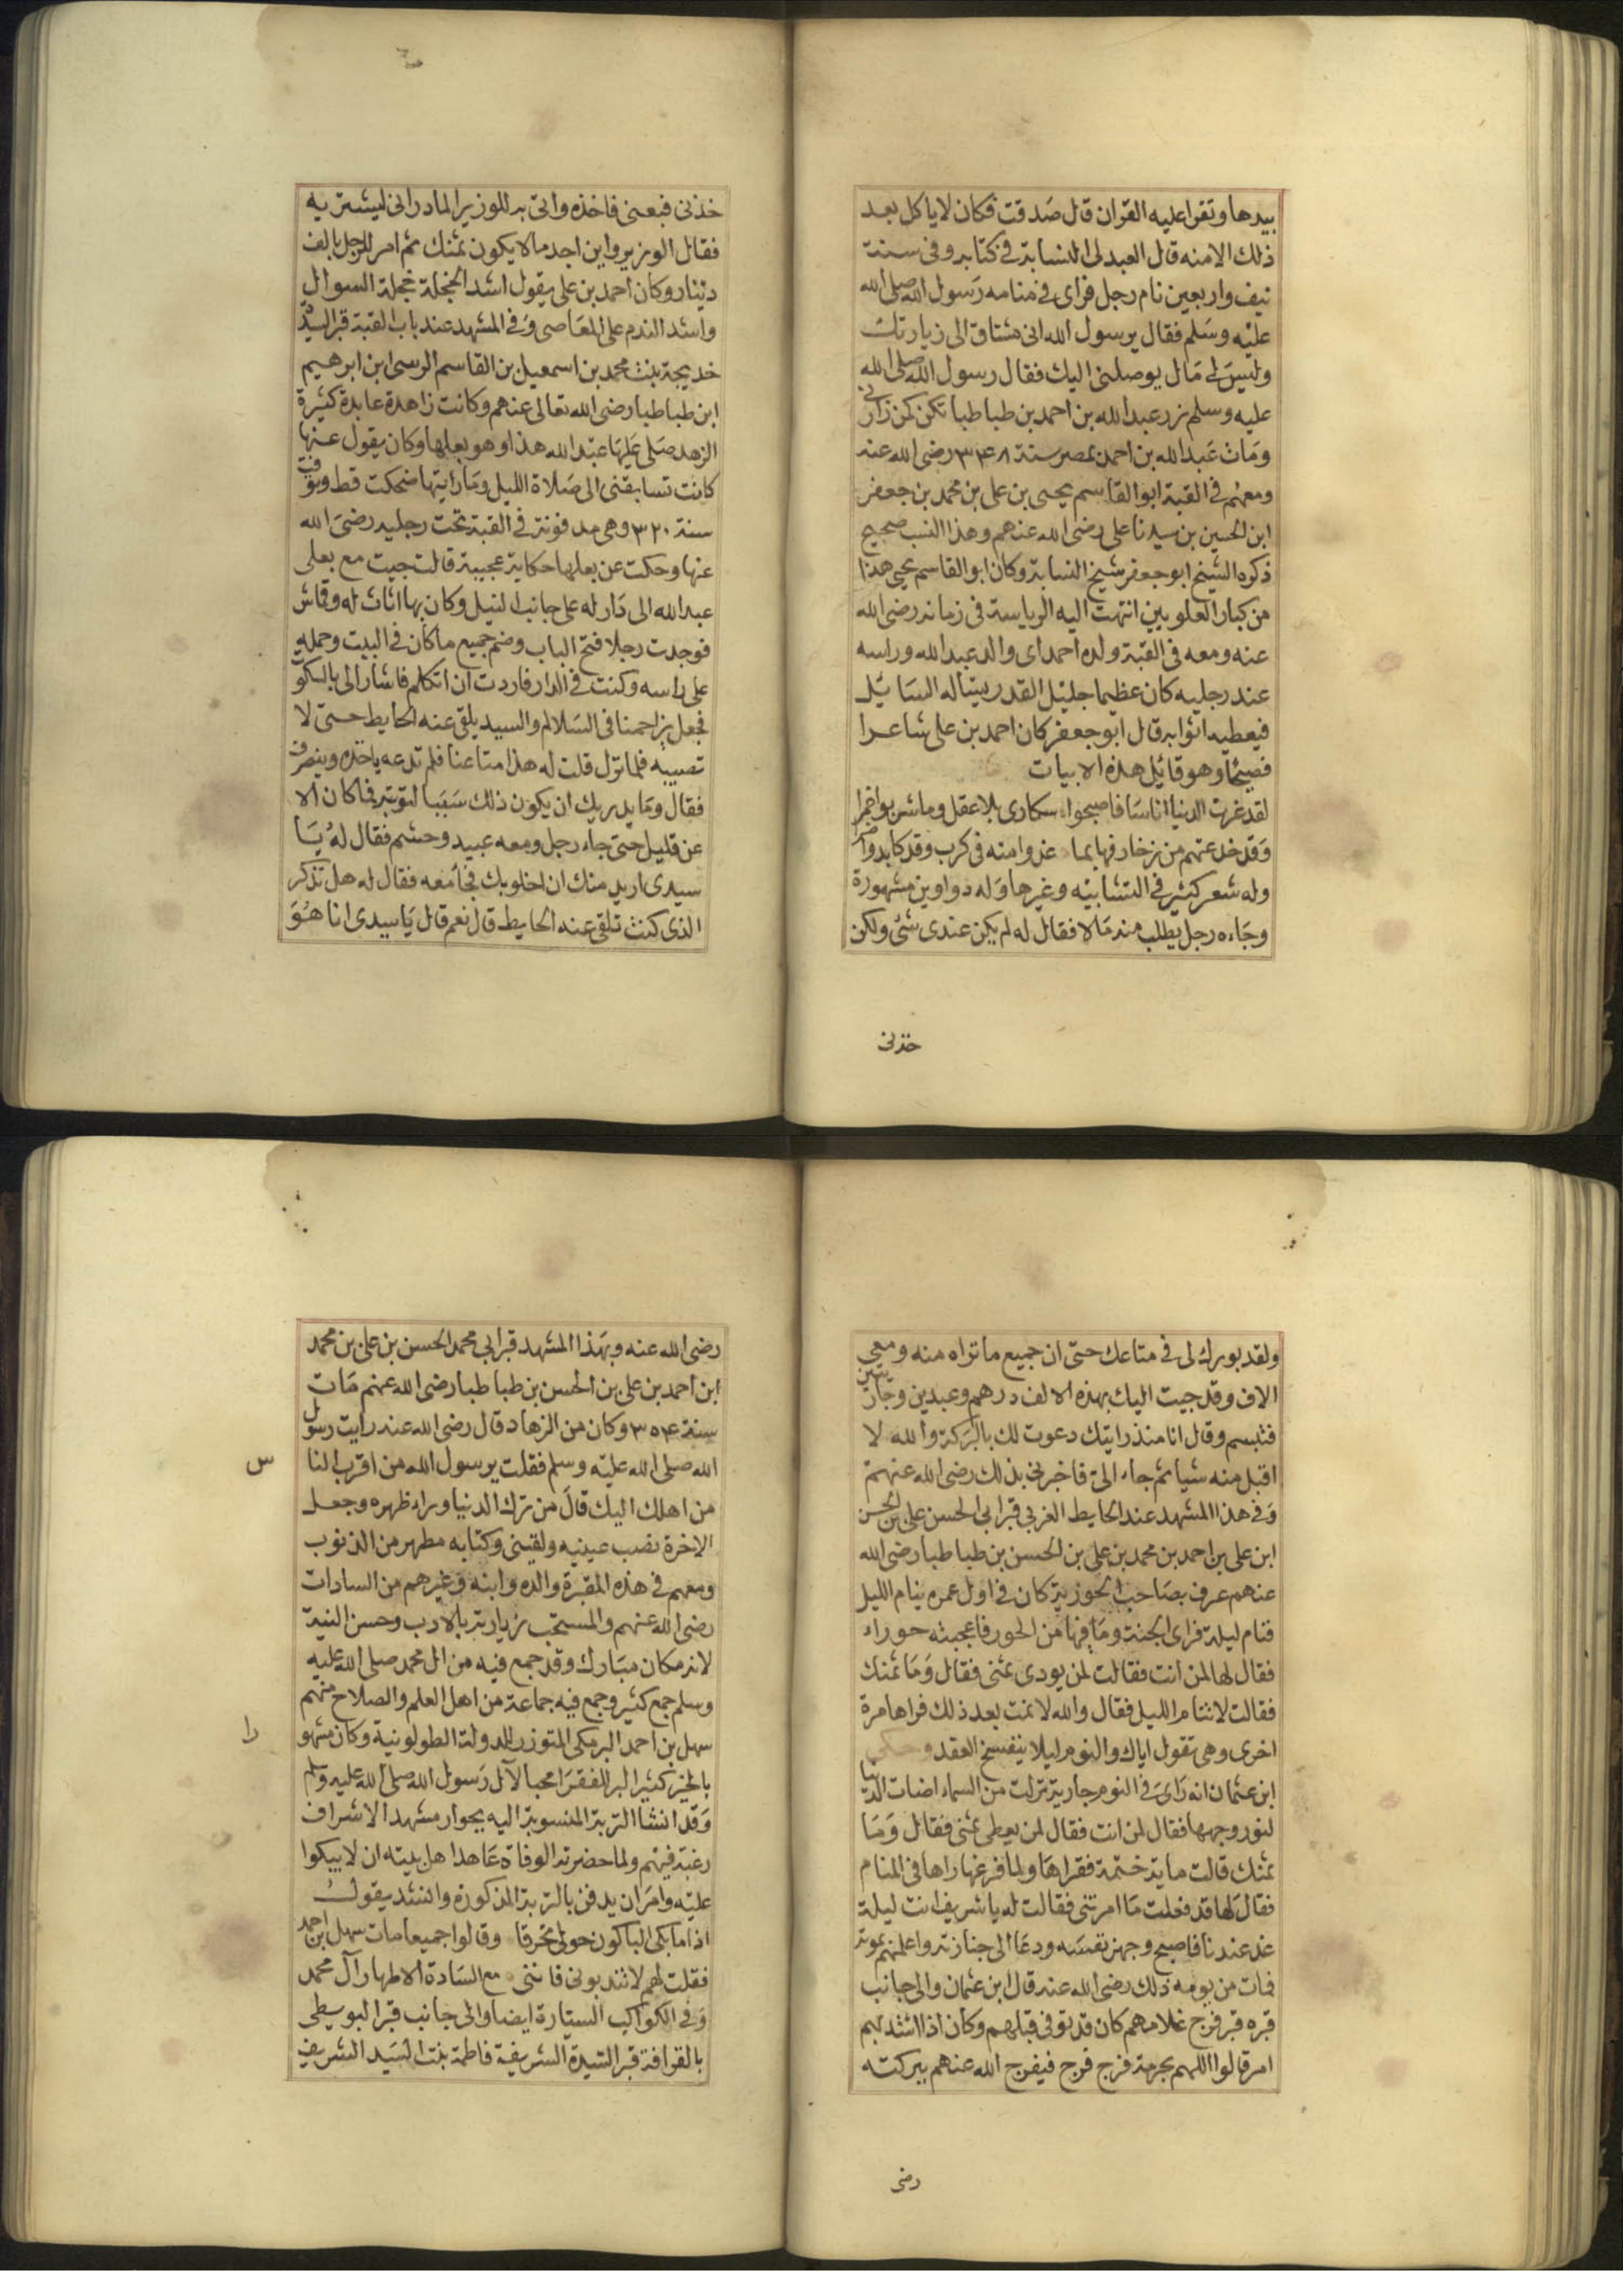 بيدها وتقرا عليه القران قال صدقت فكان لا ياكل بعد
ذلك الا منه قال العبدلى النسابة فى كتابه وفى سنة
نيف واربعين نام رجل فراى فى منامه رسول الله صلى الله
عليه وسلم فقال يرسول الله انى مشتاق الى زيارتك
وليس لى مال يوصلنى اليك فقال رسول الله صلى الله
عليه وسلم زر عبد الله بن احمد بن طباطبا تكن كمن زارنى
ومات عبد الله بن احمد بمصر سنة ٣٤٨ رضى الله عنه
ومعهم فى القبة ابو القاسم يحيى بن على بن محمد بن جعفر
ابن الحسين بن سيدنا على رضى الله عنهم وهذا النسب صحيح
ذكره الشيخ ابو جعفر شيخ النسابة وكان ابو القاسم يحيى هذا
من كبار العلويين انتهت اليه الرياسة فى زمانه رضى الله
عنه ومعه فى القبة ولده احمد اى والد عبد الله وراسه
عند رجليه كان عظيما جليل القدر يساله السايل
فيعطيه اثوابه قال ابو جعفر كان احمد بن على شاعرا
فصيحا وهو قائل هذه الابيات
لقد غرت الدنيا اناسا فاصبحوا سكارى بلا عقل وما شربوا خمرا
وقد خدعتهم من زخارفها بما غدوا منه فى كرب وقد كابدوا ضرا
وله شعر كثير فى التشابيه وغيرها وله دواوين مشهورة
وجاءه رجل يطلب منه مالا فقال له لم يكن عندى شئ ولكن
خذنى
خذنى فبعنى فاخذه واتى به للوزير المادرانى ليشتريه
فقال الوزير واين اجد مالا يكون ثمنك ثم امر للرجل بالف
دينار وكان احمد بن على يقول اشد الخجلة خجلة السوال
واشد الندم على المعاصى وفى المشهد عند باب القبة قبر السيدة
خديجة بنت محمد بن اسمعيل بن القاسم الرسى ابن ابرهيم
ابن طباطبا رضى الله تعالى عنهم وكانت زاهدة عابدة كثيرة
الزهد صلى عليها عبد الله هذا وهو بعلها وكان يقول عنها
كانت تسابقنى الى صلاة الليل وما رايتها ضحكت قط وتوفت
سنة ٣٢٠ وهى مدفونة فى القبة تحت رجليه رضى الله
عنها وحكت عن بعلها حكاية عجيبة قالت جيت مع بعلى
عبد الله الى دار له على جانب النيل وكان بها اثاث له وقماش
فوجدت رجلا فتح الباب وضم جميع ما كان فى البيت وحمله
على راسه وكنت فى الدار فاردت ان اتكلم فاشار الى بالسكوت
فجعل يزاحمنا فى السلالم والسيد يلقى عنه الحايط حتى لا
تصيبه فلما نزل قلت له هذا متاعنا فلم تدعه ياخذه وينصرف
فقال وما يدريك ان يكون ذلك سببا لتوبته فما كان الا
عن قليل حتى جاء رجل ومعه عبيد وحشم فقال له يا
سيدى اريد منك ان اخلو بك فجا معه فقال له هل تذكر
الذى كنت تلقى عنه الحايط قال نعم قال يا سيدى انا هو
ولقد بورك لى فى متاعك حتى ان جميع ما تراه منه ومعى
الاف وقد جيت اليك بهذه الالف درهم وعبدين وجاريتين
فتبسم وقال انا منذ رايتك دعوت لك بالبركة والله لا
اقبل منه شيا ثم جاء الى فاخبرنى بذلك رضى الله عنهم
وفى هذا المشهد عند الحايط الغربى قبر ابى الحسن على بن الحسن
ابن على بن احمد بن محمد بن على بن الحسن بن طباطبا رضى الله
عنهم عرف بصاحب الحوزية كان فى اول عمره ينام الليل
فنام ليلة فراى الجنة وما فيها من الحور فاعجبته حوراء
فقال لها لمن انت فقالت لمن يودى ثمنى فقال وما ثمنك
فقالت لا تنام الليل فقال والله لا نمت بعد ذلك فراها مرة
اخرى وهى تقول اياك والنوم ليلا ينفسخ العقد وحكى
ابن عثمان انه راى فى النوم جارية نزلت من السماء اضات الدنيا
لنور وجهها فقال لمن انت فقال لمن يعطى ثمنى فقال وما
ثمنك قالت ماية ختمة فقراها ولما فرغها راها فى المنام
فقال لها قد فعلت ما امرتنى فقالت له يا شريف انت ليلة
غد عندنا فاصبح وجهز نفسه ودعا الى جنازته واعلمهم بموته
فمات من يومه ذلك رضى الله عنه قال ابن عثمان والى جانب
قبره قبر فرج غلامهم كان قد توفى قبلهم وكان اذا اشتد بهم
امر قالوا اللهم بحرمة فرج فرج فيفرج الله عنهم ببركته
رضى
رضى الله عنه وبهذا المشهد قبر ابى محمد الحسن بن على بن محمد
ابن احمد بن على بن الحسن بن طباطبا رضى الله عنهم مات
سنة ٣٥٤ وكان من الزهاد قال رضى الله عنه رايت رسول
الله صلى الله عليه وسلم فقلت يرسول الله من اقرب النا
س
من اهلك اليك قال من ترك الدنيا وراء ظهره وجعل
الاخرة نصب عينيه ولقينى وكتابه مطهر من الذنوب
ومعهم فى هذه المقبرة والده وابنه وغيرهم من السادات
رضى الله عنهم والمستحب زيارته بالادب وحسن النية
لانه مكان مبارك وقد جمع فيه من ال محمد صلى الله عليه
وسلم جمع كثير وجمع فيه جماعة من اهل العلم والصلاح منهم
سهل بن احمد البرمكى المتوزر للدولة الطولونية وكان مشهو
را
بالخير كثير البر للفقرا محبا لآل رسول الله صلى الله عليه وسلم
وقد انشا التربة المنسوبة اليه بجوار مشهد الاشراف
رغبة فيهم ولما حضرته الوفاة عاهد اهل بيته ان لا يبكوا
عليه وامر ان يدفن بالتربة المذكورة وانشد يقول
اذا ما بكى الباكون حولى تحرقا وقالوا جميعا مات سهل بن احمد
فقلت لهم لا تندبونى فاننى مع السادة الاطهار آل محمد
وفى الكواكب السيارة ايضا والى جانب قبر البويطى
بالقرافة قبر السيدة الشريفة فاطمة بنت السيد الشريف